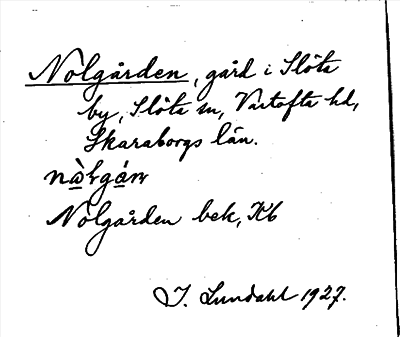 Nolgården, gård i Slöta
by, Slöta sn, Vartofta hd,
Skaraborgs län.
Nolgården bek, Kb
J. Lundahl 1927.